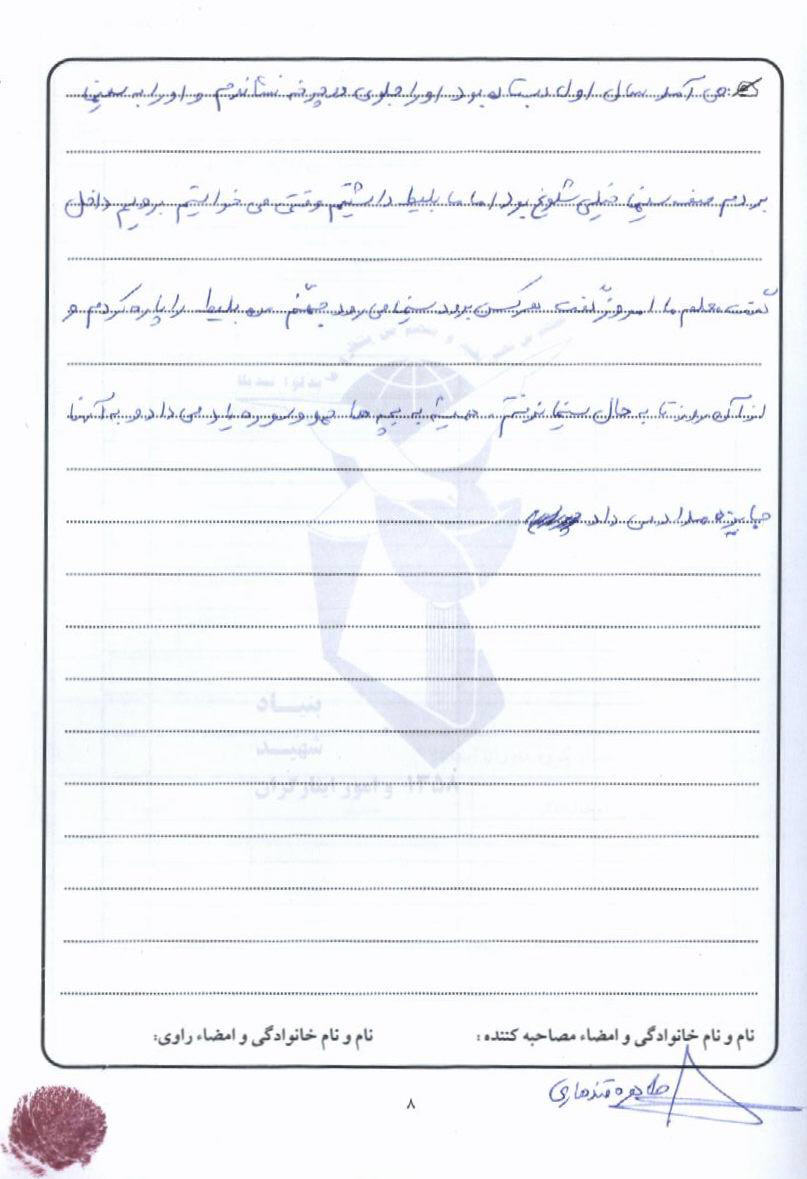 می آمد سال اول دبستان بود او را جلوی دوچرخه نشاندم و او را به سینما
بردم صف سینما خیلی شلوغ بود اما ما بلیط داشتیم وقتی می خواستیم برویم داخل
گفت معلم ما امروز گفت هرکس برود سینما می رود جهنم من بلیط را پاره کردم و
از آن روز تا به حال سینما نرفتم. همیشه به بچه ها حمد و سوره یاد می داد و به آنها
جایزه مداد می داد
بنیاد
شهید
و امور ایثارگران ۱۳۵۸
نام و نام خانوادگی و امضاء مصاحبه کننده :
نام و نام خانوادگی و امضاء راوی:
طاهره قندهاری
۸